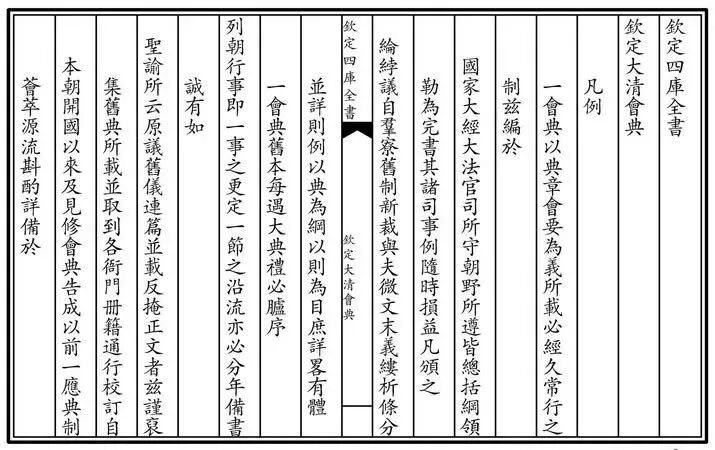 欽定四庫全書
欽定大清會典
凡例
一會典以典章會要為義所載必經久常行之
制兹編於
國家大經大法官司所守朝野所遵皆總括綱領
勒為完書其諸司事例隨時損益凡頒之
綸綍議自羣寮舊制新裁與夫微文末義縷析條分
欽定四庫全書
欽定大清會典
並詳則例以典為綱以則為目庶詳畧有體
一會典舊本每遇大典禮必臚序
列朝行事即一事之更定一節之沿流亦必分年備書
誠有如
聖諭所云原議舊儀連篇並載反掩正文者兹謹裒
集舊典所載並取到各衙門冊籍通行校訂自
本朝開國以來及見修會典告成以前一應典制
薈萃源流斟酌詳備於